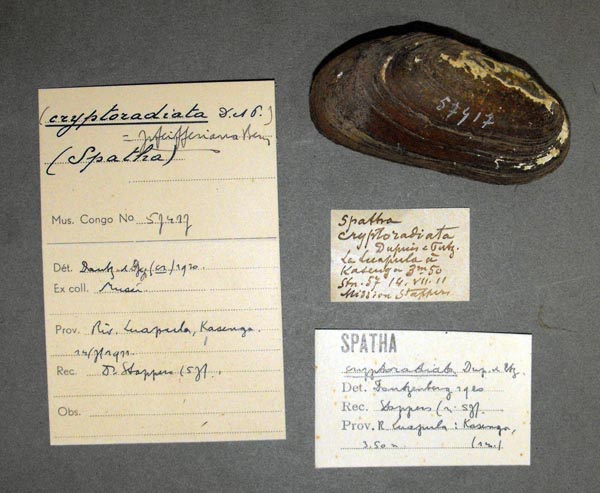 (cryptoradiata D. & P.)
= pfeifferiana Bern
(Spatha)
Mus. Congo No 57.417
Dét. Dautz. 1920
Ex coll. Musée
Prov. Riv. Luapula, Kasenga.
14/7/1911
Rec. Dr Stappers (57).
Obs.
57417
Spatha
cryptoradiata
Dupuis & Putz.
Le Luapula à
Kasenga 3m50
Stn. 57 14.VII.11
Mission Stappers
SPATHA
cryptoradiata Dup. & Ptz.
Det. Dautzenberg 1920
Rec. Stappers (n. 57).
Prov. R. Luapula : Kasenga,
3.50 m.